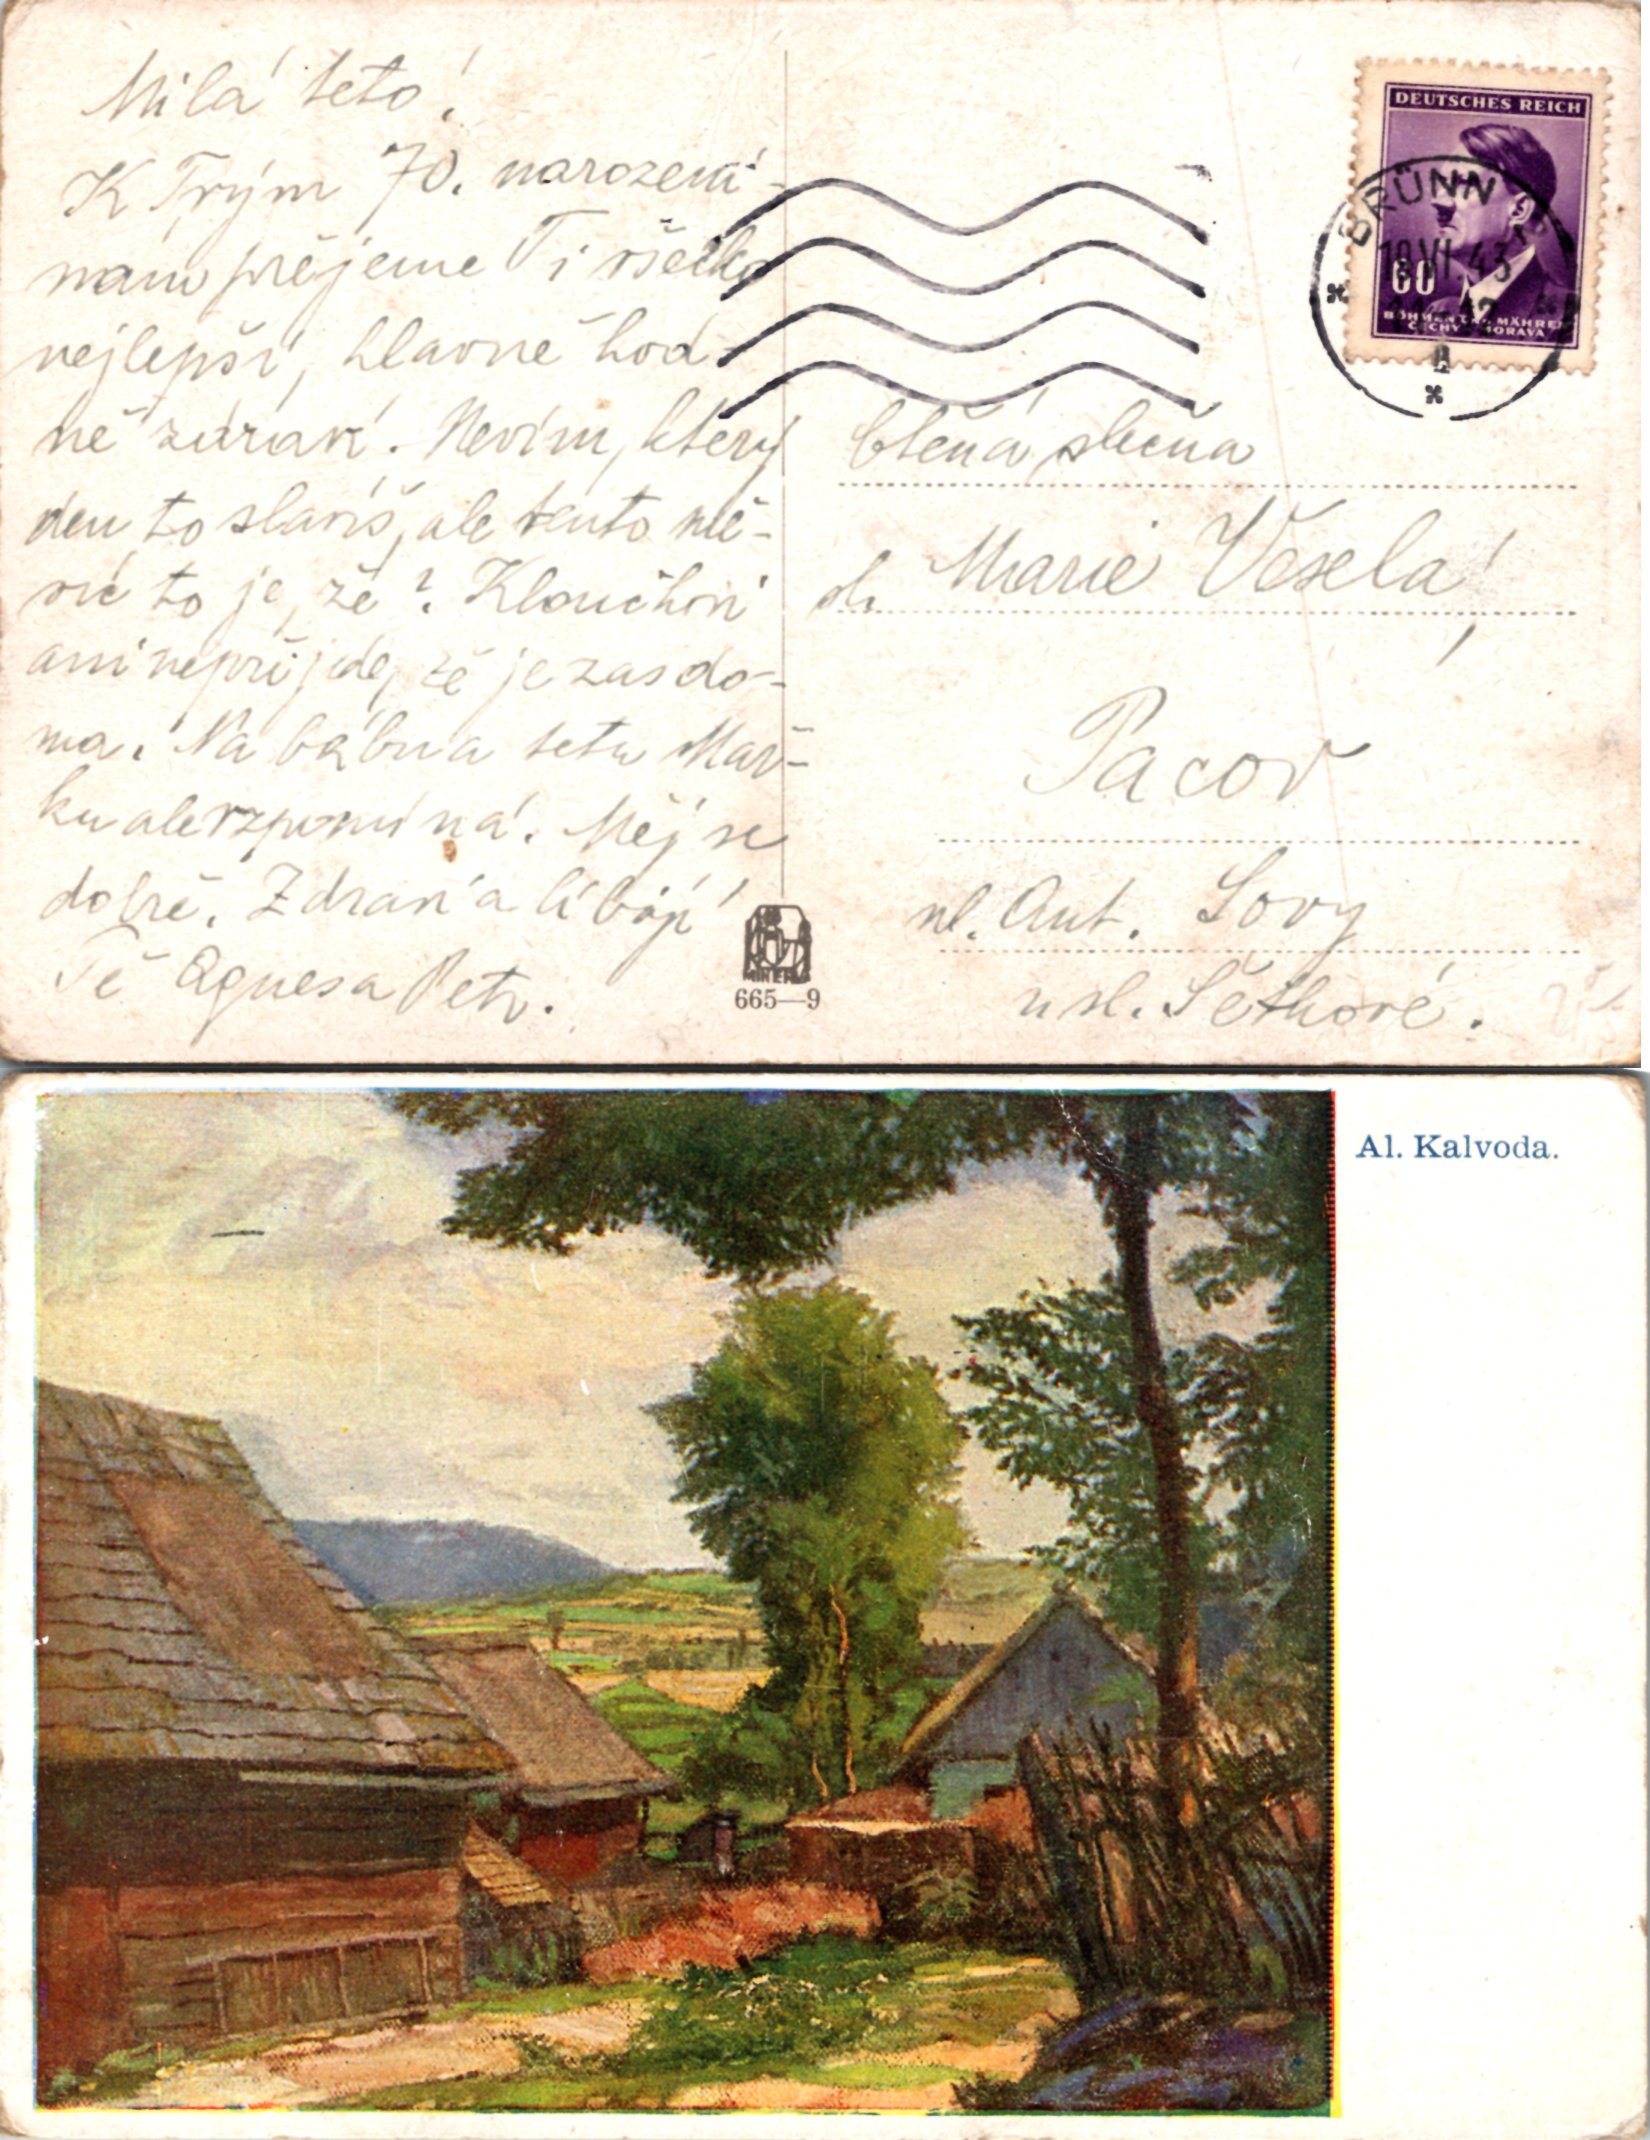 Milá teto!
K Tvým 70. narozeni-
nám přejeme Ti všetko
nejlepší, hlavně hod-
ně zdraví. Nevím, který
den to slavíš, ale tento mě-
síc to je, že? Kloučkovi
ani nepřijde, že je zas do-
ma. Na bábu a tetu Mař-
ku ale vzpomíná. Měj se
dobře. Zdraví a líbají
Tě Agnesa Petr.
DEUTSCHES REICH
BRÜNN
VI. 43
60
BÖHMEN U. MÄHREN
ČECHY A MORAVA
Ctěná slečna
sl. Marie Veselá
Pacov
ul. Ant. Sovy
u sl. Šetkové.
665—9
Al. Kalvoda.